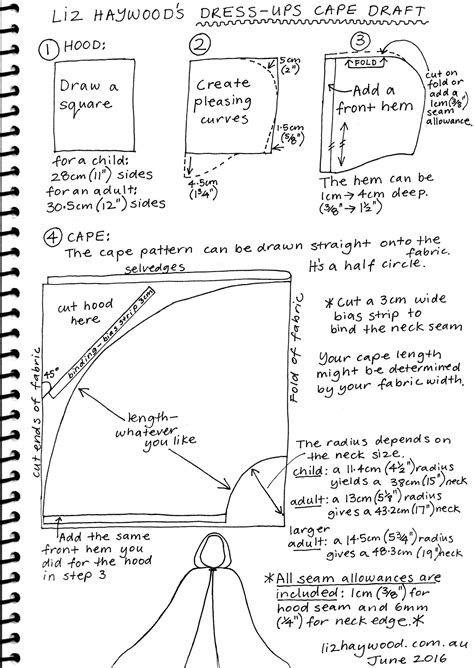 LIZ HAYWOOD'S DRESS-UPS CAPE DRAFT
① HOOD:
Draw a
square
for a child:
28cm (11") sides
for an adult:
30.5cm (12") sides
②
Create
pleasing
curves
5cm
(2")
1.5cm
(5/8")
4.5cm
(1 3/4")
③
FOLD
Add a
front hem
cut on
fold or
add a
1cm (3/8")
seam
allowance.
The hem can be
1cm → 4cm deep.
(3/8" → 1 1/2")
④ CAPE:
The cape pattern can be drawn straight onto the
fabric.
It's a half circle.
selvedges
cut hood
here
binding - bias strip 3cm
45°
cut ends of fabric
Fold of fabric
length-
whatever
you like
* Cut a 3cm wide
bias strip to
bind the neck seam
Your cape length
might be determined
by your fabric width.
The radius depends on
the neck size.
child: a 11.4cm (4 1/2") radius
yields a 38cm (15") neck
adult: a 13cm (5 1/8") radius
gives a 43.2cm (17") neck
larger
adult: a 14.5cm (5 3/4") radius
gives a 48.3cm (19") neck
Add the same
front hem you
did for the hood
in step 3
* All seam allowances are
included: 1cm (3/8") for
hood seam and 6mm
(1/4") for neck edge. *
lizhaywood.com.au
June 2016